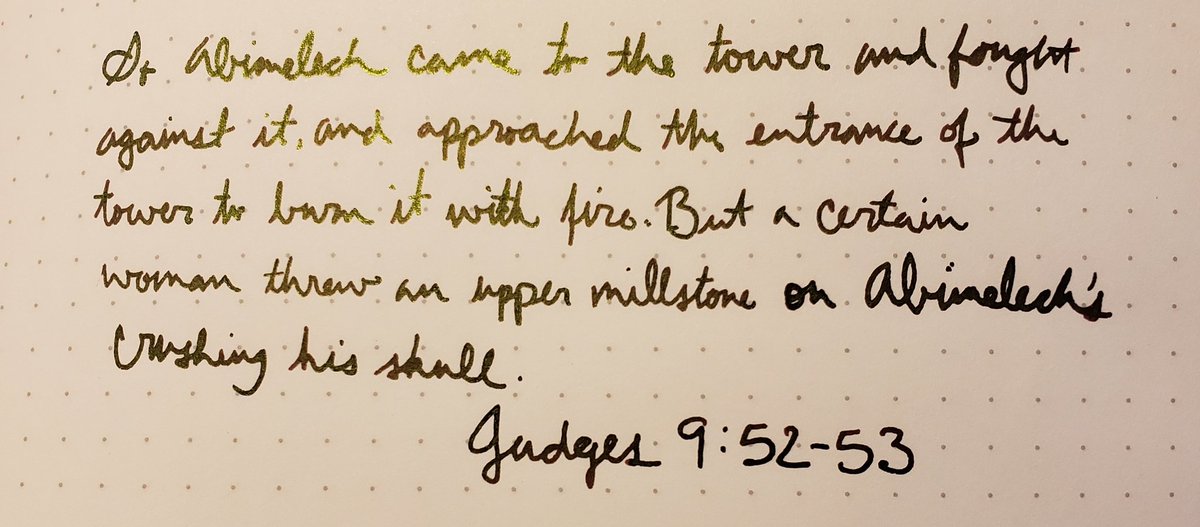 So Abimelech came to the tower and fought
against it, and approached the entrance of the
tower to burn it with fire. But a certain
woman threw an upper millstone on Abimelech's
crushing his skull.
Judges 9:52-53